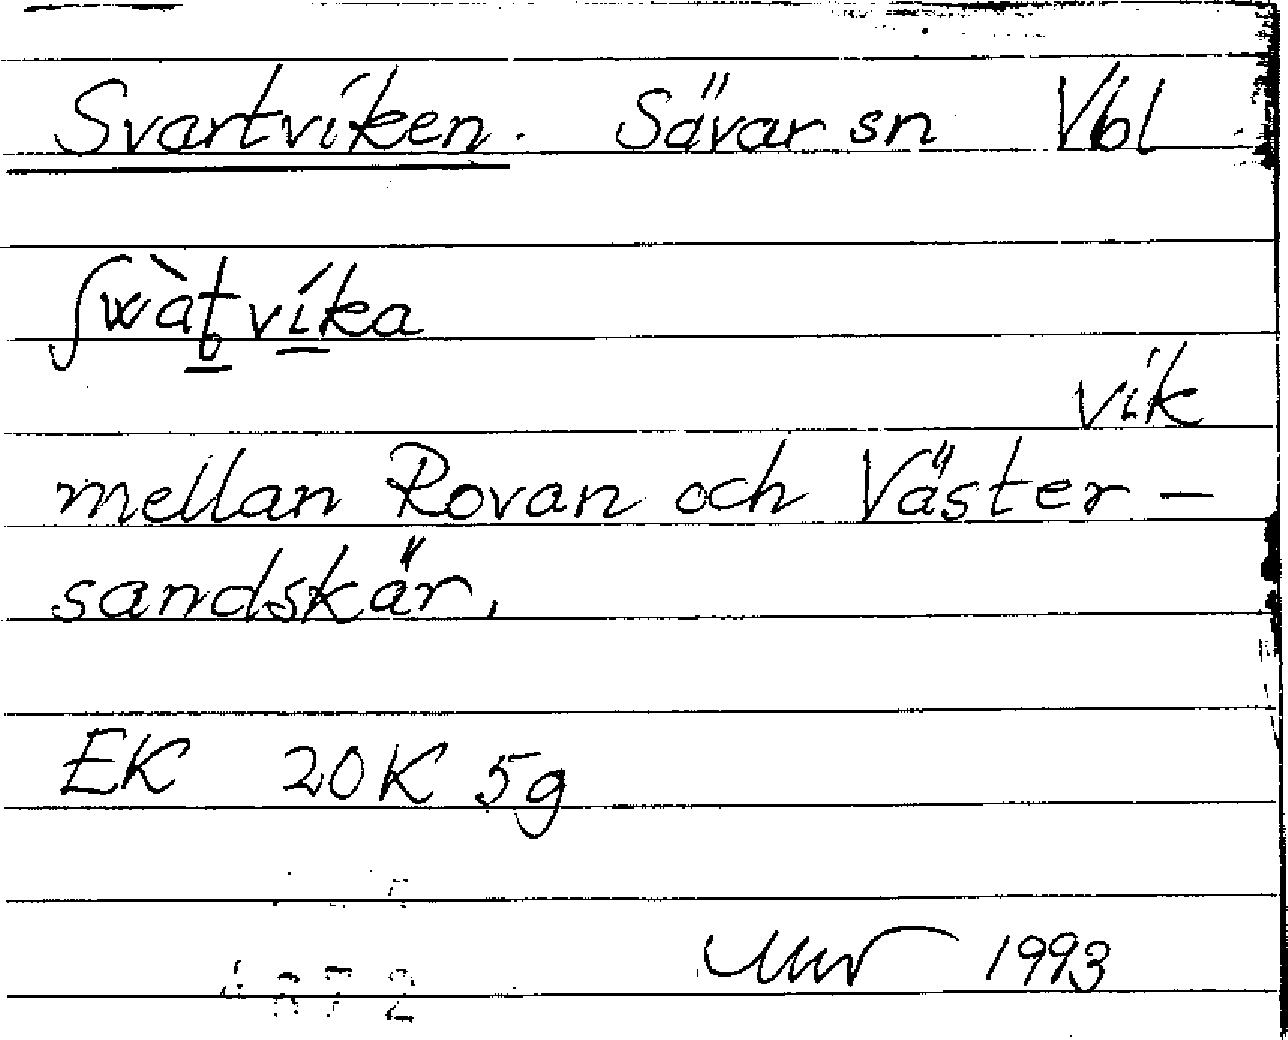 Svartviken. Sävar sn Vbl
ʃwàtvíka
vik
mellan Rovan och Väster-
sandskär.
EK 20K 5g
1993